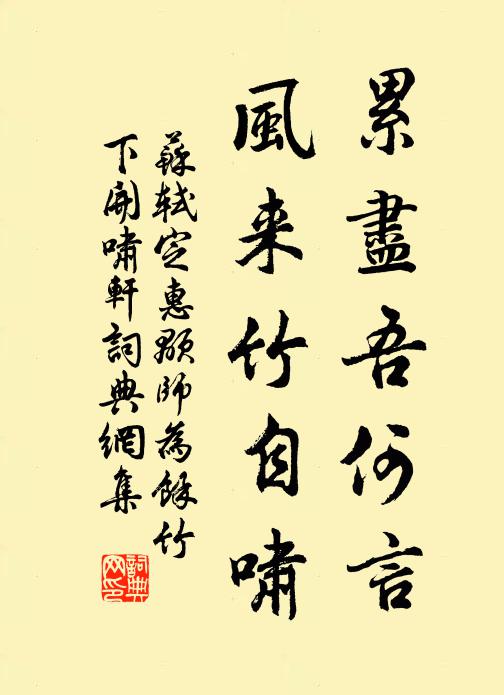 累盡吾何言
風来竹自嘯
蘇軾定惠顒師為餘竹
下開嘯軒詞典網集
詞典
网印